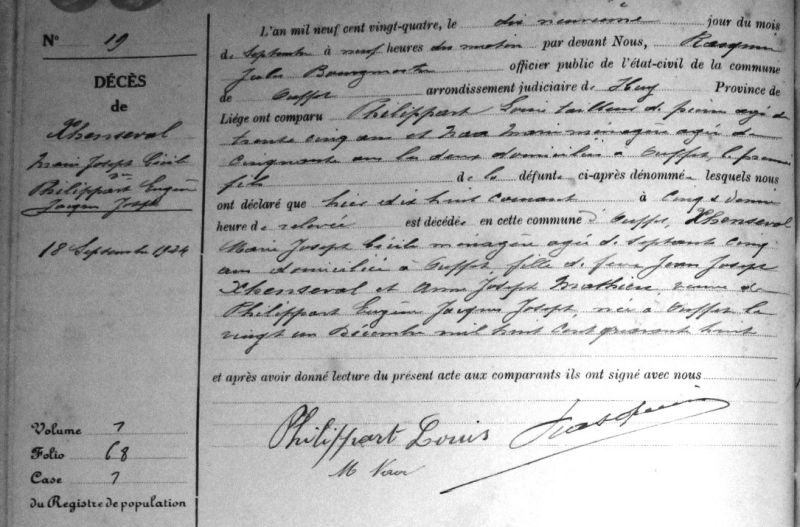 N° 19
DÉCÈS
de
Xhenseval
Marie Joseph Cécile
Philippart Eugène
Jacques Joseph
18 Septembre 1924
Volume 7
Folio 68
Case 7
du Registre de population
L'an mil neuf cent vingt-quatre, le dix neuvième jour du mois
de Septembre à neuf heures du matin par devant Nous, Rasquin
Jules Bourgmestre officier public de l'état-civil de la commune
de Ouffet arrondissement judiciaire de Huy Province de
Liége ont comparu Philippart Louis tailleur de pierre agé de
trente cinq ans et Marie ménagère agée de
cinquante ans les deux domiciliés à Ouffet, le premier
fils de la défunte ci-après dénommée lesquels nous
ont déclaré que hier dix huit courant à cinq & demie
heure de relevée est décédée en cette commune d'Ouffet, Xhenseval
Marie Joseph Cécile ménagère agée de septante cinq
ans domiciliée à Ouffet, fille de feux Jean Joseph
Xhenseval et Anne Joseph Mathieu veuve de
Philippart Eugène Jacques Joseph, née à Ouffet le
vingt un Décembre mil huit cent quarante huit
et après avoir donné lecture du présent acte aux comparants ils ont signé avec nous
Philippart Louis Rasquin